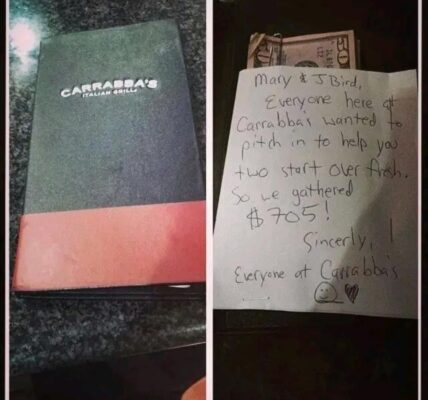 CARRABBA'S
ITALIAN GRILL
50
Mary & J Bird,
Everyone here at
Carrabbas wanted to
pitch in to help you
two start over fresh.
So we gathered
$705!
Sincerly, !
Everyone at Carrabba's